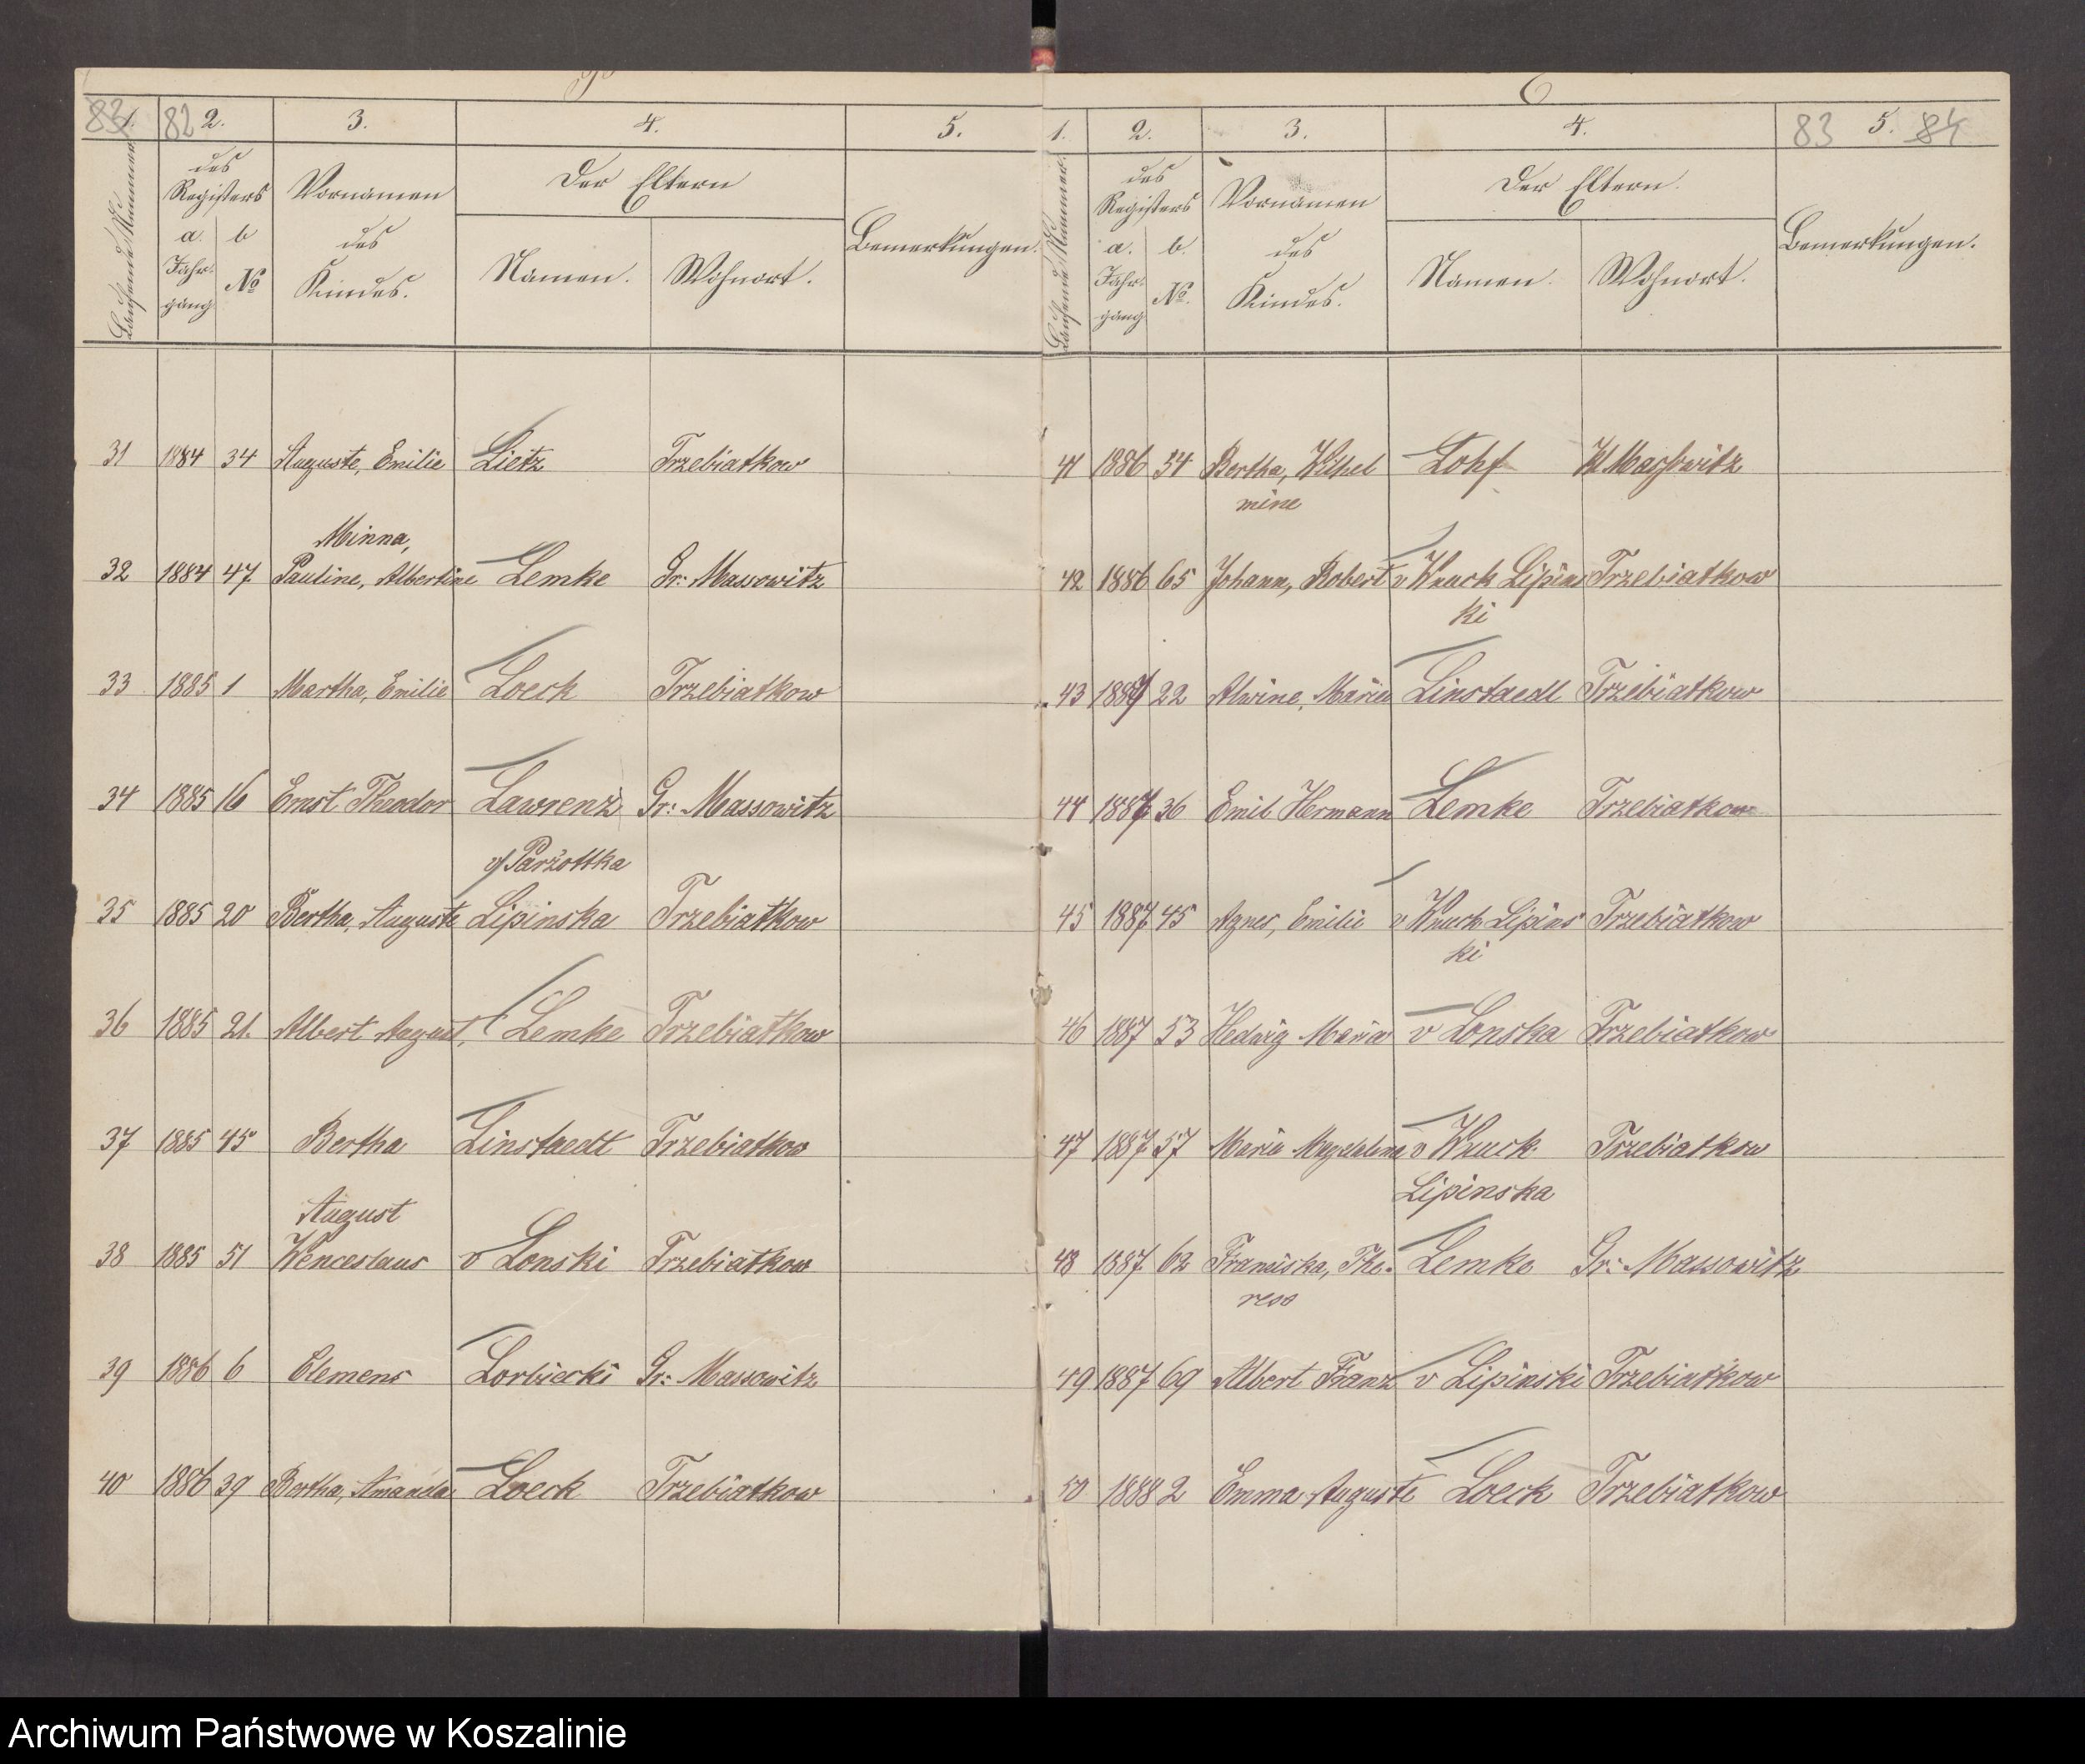 83 1. 82 2. 3. 4. 5.
Laufende Nummer
des Registers
a. Jahrgang
b №
Vornamen des Kindes.
Der Eltern
Namen. Wohnort.
Bemerkungen.
31 1884 34 Auguste, Emilie Lietz Trzebiatkow
Minna,
32 1884 47 Pauline, Albertine Lemke Gr: Massowitz
33 1885 1 Martha, Emilie Loeck Trzebiatkow
34 1885 16 Ernst Theodor Lawrenz Gr: Massowitz
v Parzottka
35 1885 20 Bertha, Auguste Lipinska Trzebiatkow
36 1885 21. Albert August, Lemke Trzebiatkow
37 1885 45 Bertha Linstaedt Trzebiatkow
August
38 1885 51 Wenceslaus v Lonski Trzebiatkow
39 1886 6 Clemens Lorbiecki Gr: Massowitz
40 1886 39 Bertha, Amanda Loeck Trzebiatkow
6
1. 2. 3. 4. 83 5. 84
Laufende Nummer.
des Registers
a. Jahrgang
b. №.
Vornamen des Kindes.
Der Eltern.
Namen. Wohnort.
Bemerkungen.
41 1886 54 Bertha, Wilhel
mine
42 1886 65 Johann, Robert v Wnuck Lipins Trzebiatkow
ki
43 1887 22 Alwine, Marie Linstaedt Trzebiatkow
44 1887 36 Emil Hermann Lemke Trzebiatkow
45 1887 45 Agnes, Emilie v Wnuck Lipins Trzebiatkow
ki
46 1887 53 Hedwig Maria v Lonska Trzebiatkow
47 1887 57 Maria Magdalena v Wnuck Trzebiatkow
Lipinska
48 1887 62 Franziska, The- Lemke Gr: Massowitz
rese
49 1887 69 Albert Franz v Lipinski Trzebiatkow
50 1888 2 Emma Auguste Loeck Trzebiatkow
Archiwum Państwowe w Koszalinie